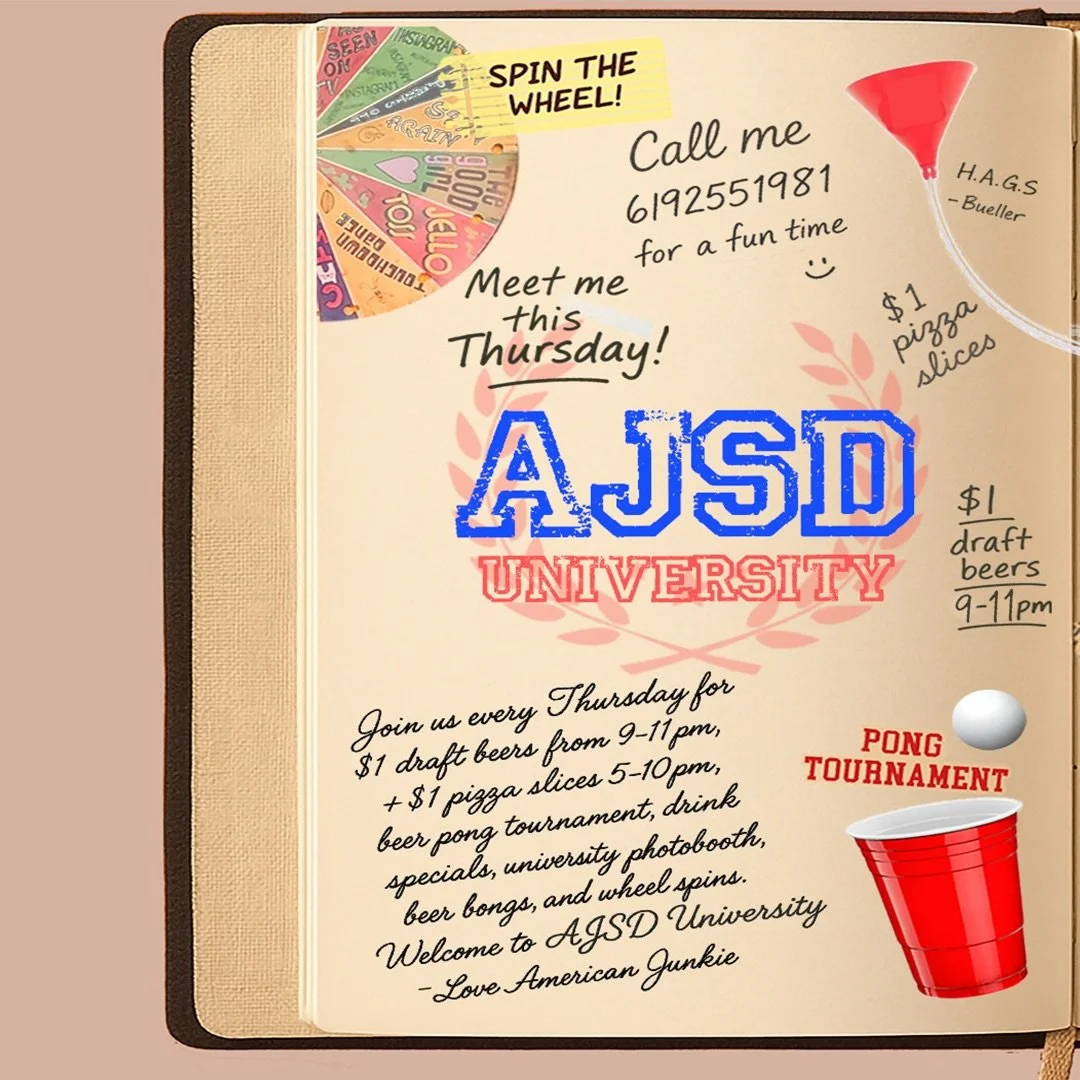 SPIN THE
WHEEL!
SEEN
ON
INSTAGRAM
INSTAGRAM
AGAIN
THE
GOOD
girl
JELLO
TOSS
TOUCHDOWN
DANCE
Call me
6192551981
for a fun time
H.A.G.S
-Bueller
Meet me
this
Thursday!
$1
pizza
slices
AJSD
UNIVERSITY
$1
draft
beers
9-11pm
Join us every Thursday for
$1 draft beers from 9-11pm,
+ $1 pizza slices 5-10pm,
beer pong tournament, drink
specials, university photobooth,
beer bongs, and wheel spins.
Welcome to AJSD University
-Love American Junkie
PONG
TOURNAMENT